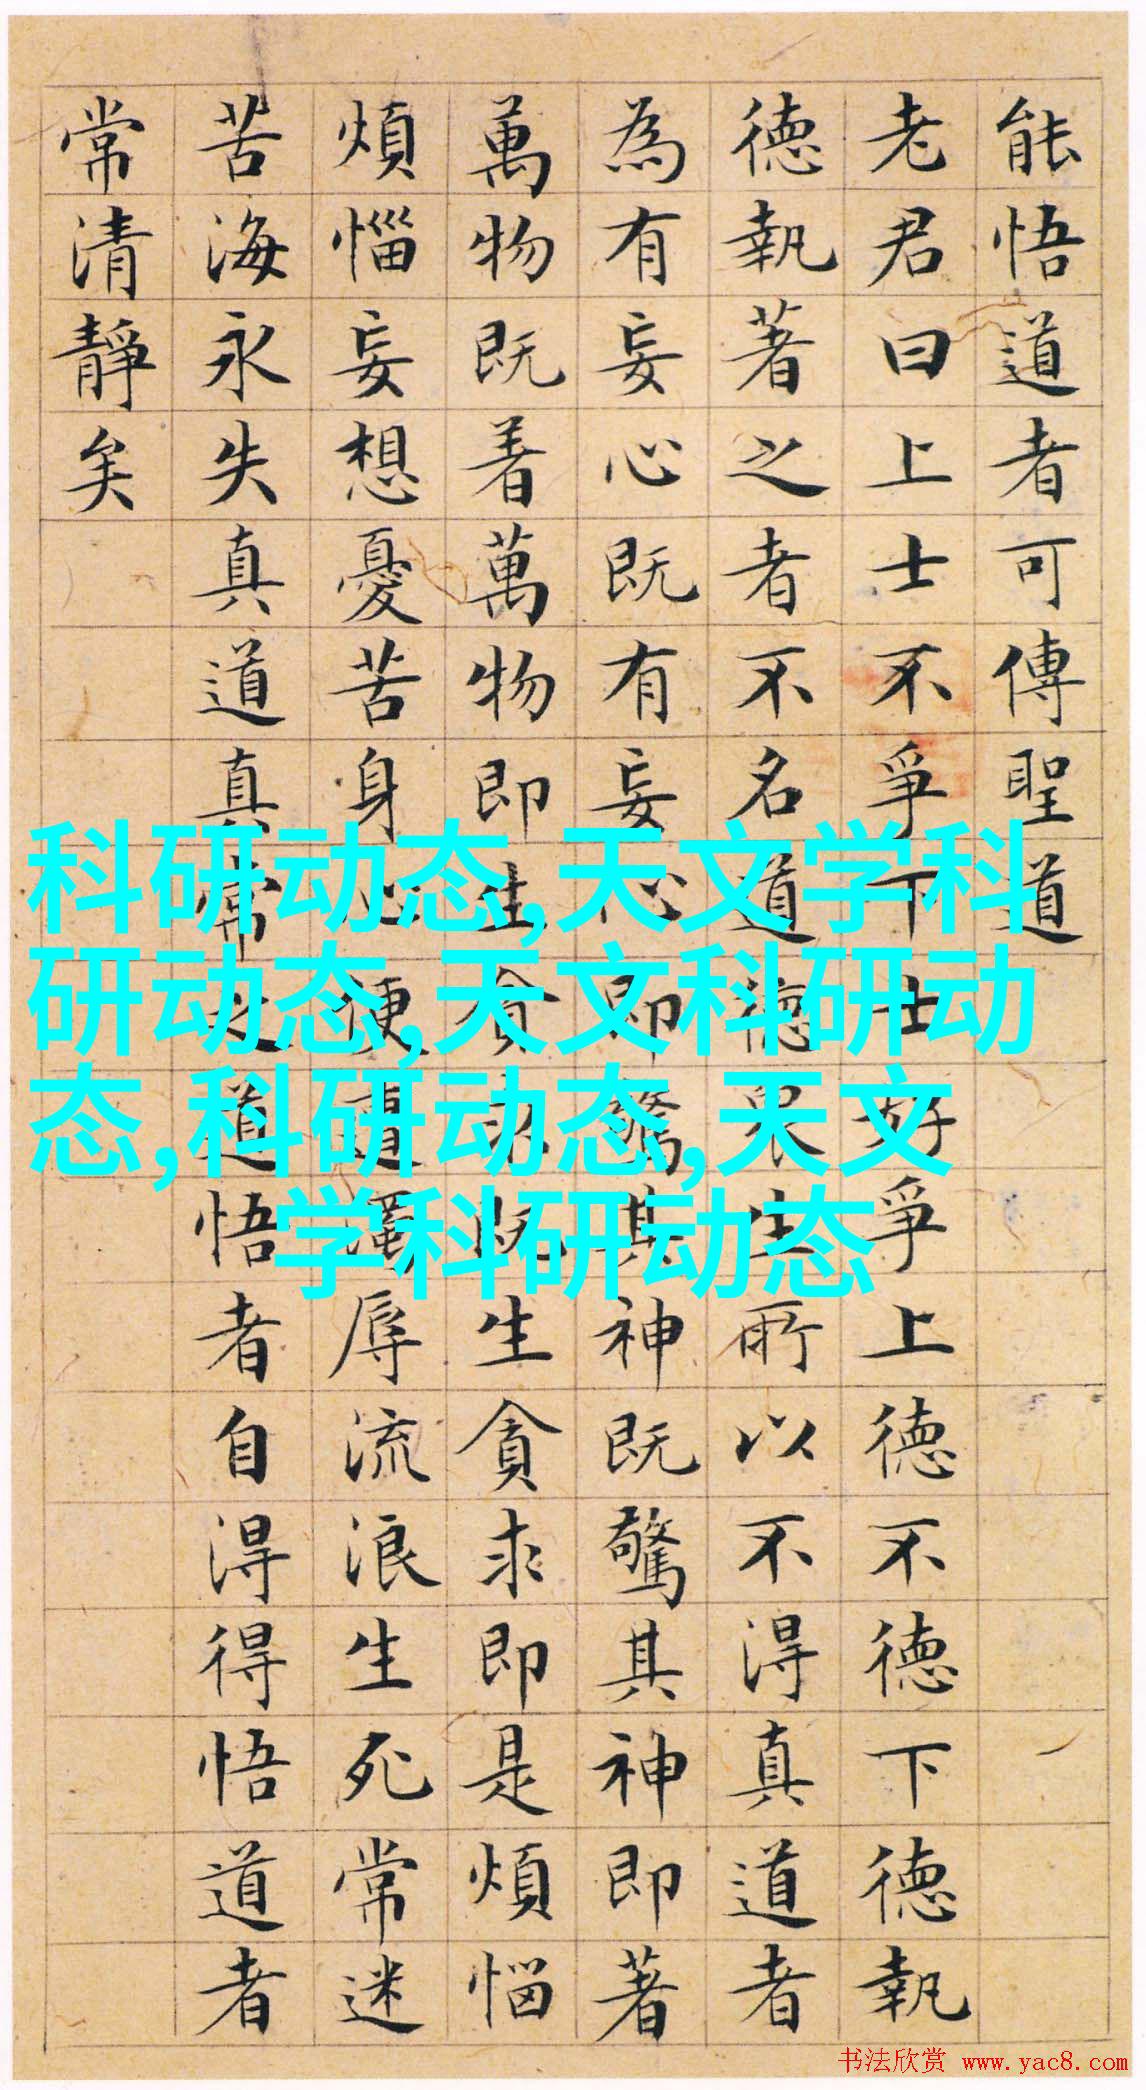 能悟道者可傳聖道
老君曰上士不爭下士好爭上德不德下德執
德執著之者不名道德衆生所以不得真道者
為有妄心既有妄心即驚其神既驚其神即著
萬物既着萬物即生貪求既生貪求即是煩惱
煩惱妄想憂苦身心便遭濁辱流浪生死常迷
苦海永失真道真常之道悟者自得得悟道者
常清靜矣
科研动态,天文学科
研动态,天文科研动
态,科研动态,天文
学科研动态
书法欣赏 www.yac8.com